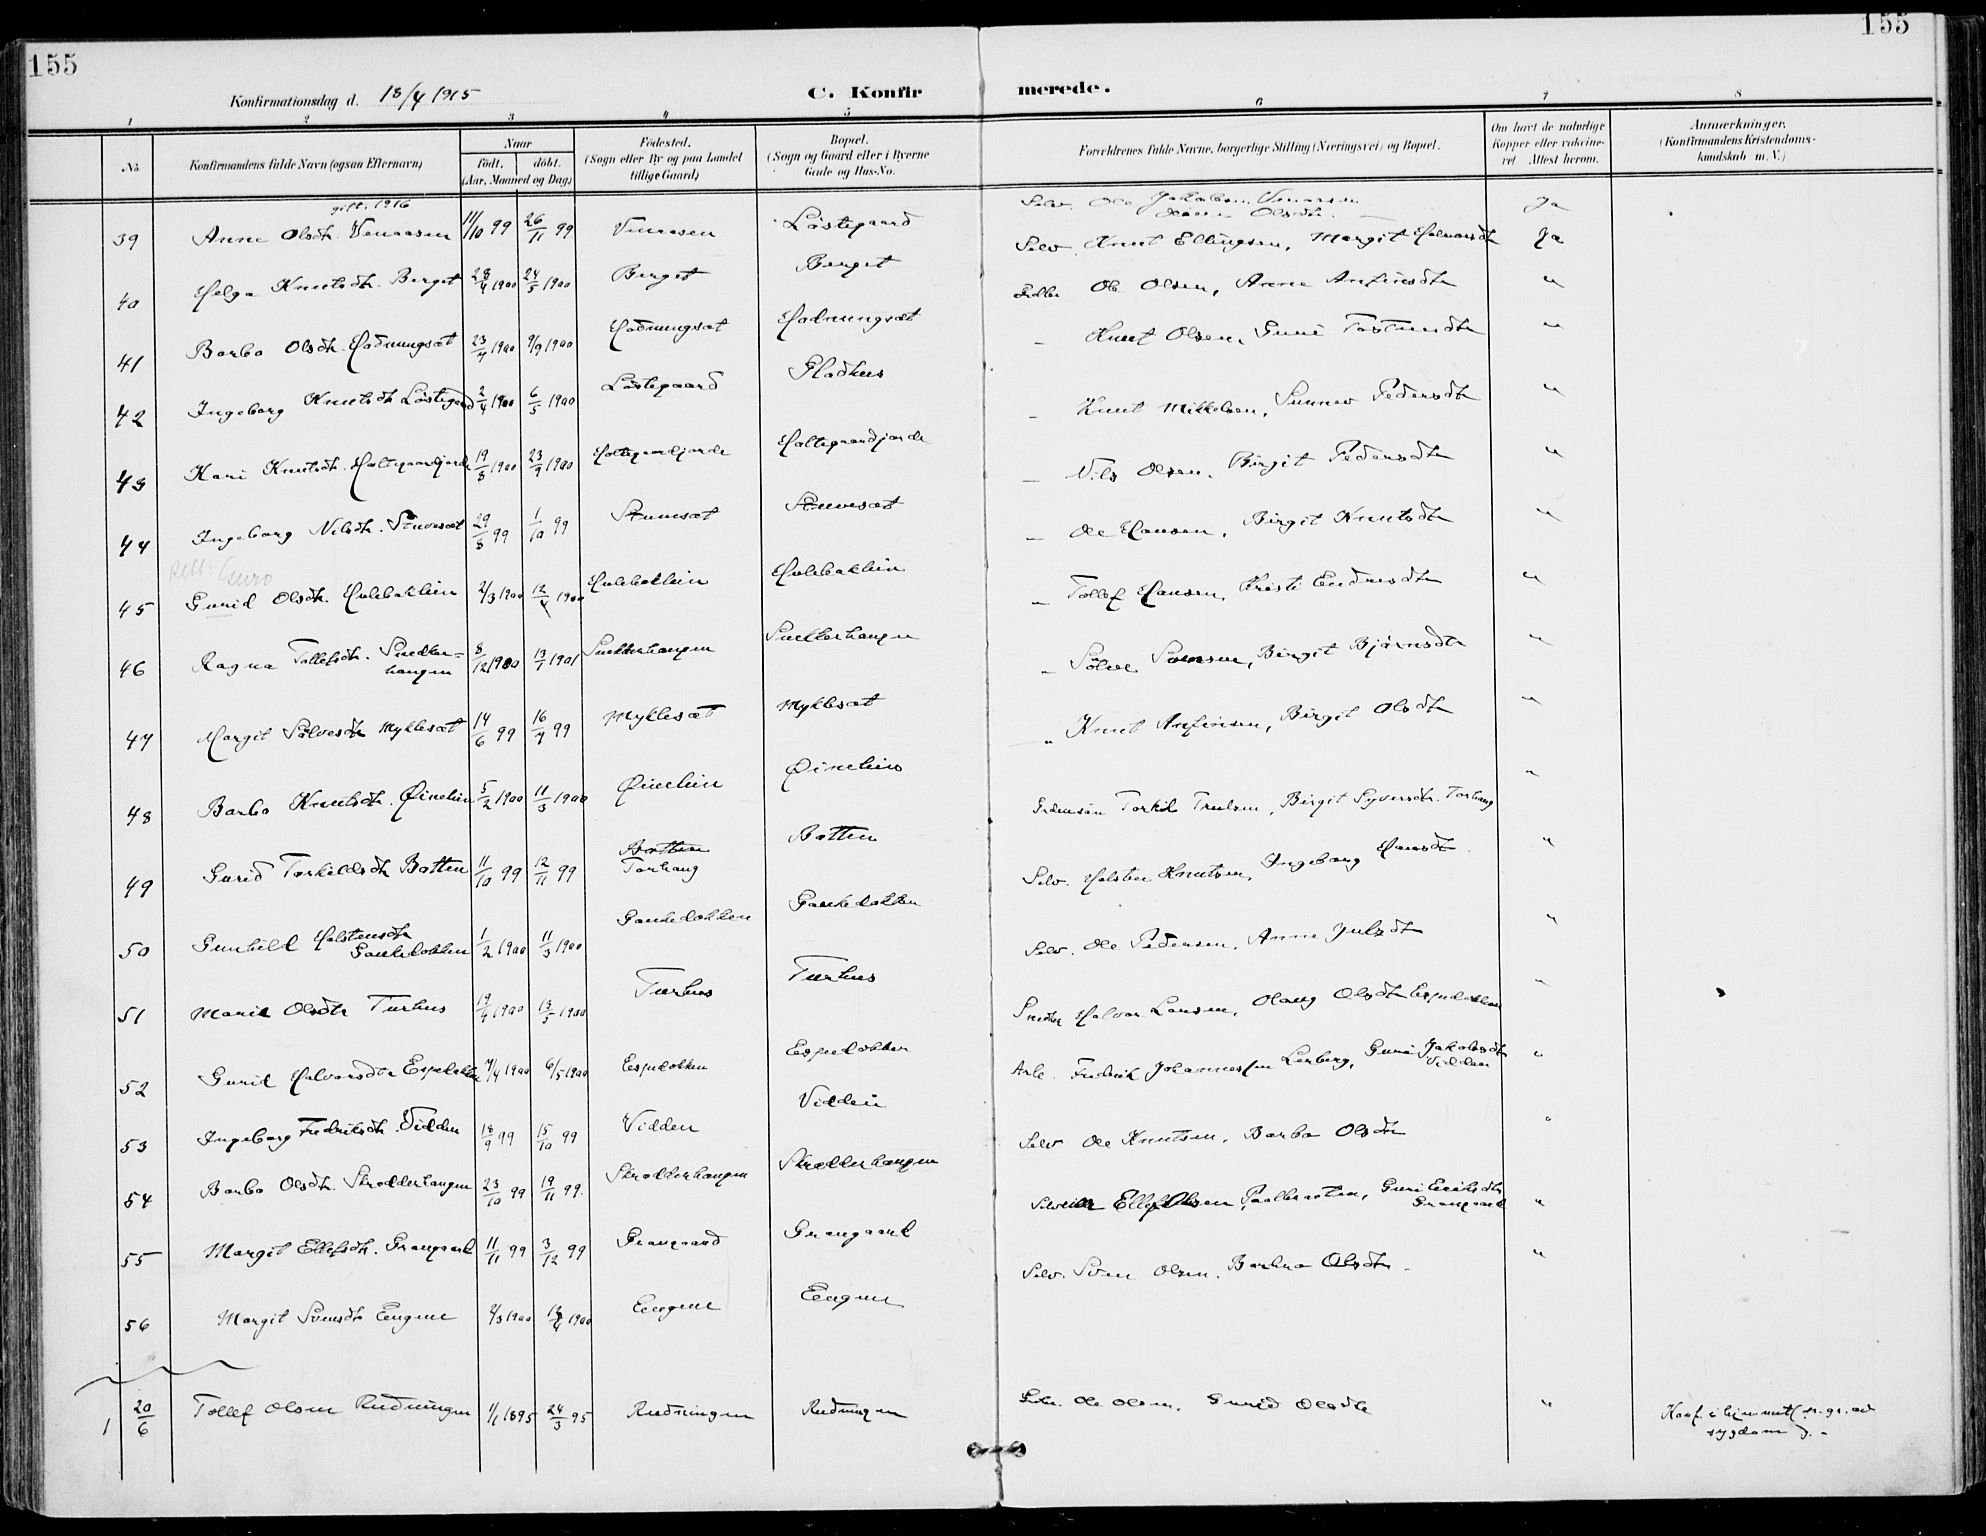 155
155
Konfirmationsdag d. 18/4 1915
C. Konfir merede.
1 2 3 4 5 6 7 8
No.
Konfirmandens fulde Navn (ogsaa Efternavn)
Naar
født, døbt.
(Aar, Maaned og Dag)
Fødested.
(Sogn eller By og paa Landet
tillige Gaard)
Bopæl.
(Sogn og Gaard eller i Byerne
Gade og Hus-No.
Forældrenes fulde Navne, borgerlige Stilling (Næringsvei) og Bopæl.
Om havt de naturlige
Kopper eller vakcine-
ret Attest herom.
Anmærkninger,
(Konfirmandens Kristendoms-
kundskab m. V.)
gift. 1916
39 Anne Olsdtr. Venaasen 11/10 99 26/11 99 Venaasen Løstegaard Selv. Ole Jakobsen Venaasen Olsdtr. Ja
40 Helga Knutsdtr. Berget 28/4 1900 24/5 1900 Berget Berget Selv. Knut Ellingsen, Margit Halvorsdtr Ja
41 Barbo Olsdtr. Hødnungsæt 23/4 1900 9/9 1900 Hødnungsæt Hødnungsæt Ole Olsen, Anne Anfinsdtr "
42 Ingeborg Knutsdtr Løstegaard 2/4 1900 6/5 1900 Løstegaard Gladhus – Knut Olsen, Guri "
43 Kari Knutsdtr. Holtegaardjorde 19/8 1900 23/9 1900 Holtegaardjorde Holtegaardjorde – Knut Mikkelsen, Sunnev Pedersdtr "
44 Ingeborg Nilsdtr. 29/8 99 1/10 99 – Nils Olsen, Birgit Pedersdtr "
Guro
45 Gurid Olsdtr. Hulebakkin 2/3 1900 12/4 1900 Hulebakkin Hulebakkin – Ole Hansen, Birgit Knutsdtr "
46 Ragna Tollefsdtr. Snedker=
haugen 8/12 1900 13/1 1901 Snekkerhaugen Snekkerhaugen " Tollef Hansen, Kristi Endresdtr "
47 Margit Sølvesdtr Myklesæt 14/6 99 16/7 99 Myklesæt Myklesæt " Sølve Svensen, Birgit Bjørnsdtr "
48 Barbo Knutsdtr. Øinelien 5/2 1900 11/3 1900 Øinelien Øinelien " Knut Anfinsen, Birgit Olsdtr "
49 Gurid Torkildsdtr Botten 11/10 99 12/11 99 Botten
Torhaug Botten Torkil Trulsen, Birgit Syversdtr. Torhaug "
50 Gunhild Holstensdtr
Gaukedokken 1/2 1900 11/3 1900 Gaukedokken Gaukedokken Selv. Holsten Knutsen, Ingeborg Hansdtr "
51 Marie Olsdtr Turhus 1900 1900 Turhus Turhus Selv. Ole Pedersen, Anne Julsdtr "
52 Gurid Halvorsdtr Espedokken 7/4 1900 6/5 1900 Espedokken Espedokken Halvor Larsen, Olaug Olsdtr Espedokken "
53 Ingeborg Fredriksdtr. Vidden 18/9 99 15/10 99 Vidden Vidden Arb. Fredrik Johannessen Lerberg, Guri Jakobsdtr
Vidden "
54 Barbo Olsdtr. Skrædderhaugen 23/10 99 19/11 99. Skrædderhaugen Skrædderhaugen Selv Ole Knutsen, Barbo Olsdtr "
55 Margit Ellefsdtr. Grangaard 11/11 99 3/12 99 Grangaard Grangaard Ellef Olsen Guri Eriksdtr
Grangaard "
56 Margit Svensdtr Eengene 2/3 1900 1900 Eengene Eengene Selv. Sven Olsen, Barbra Olsdtr. "
1 20/6 Tollef Olsen Rudningen 1/1 1895 24/3 95 Rudningen Rudningen Selv. Ole Olsen, Gurid Olsdtr "
Konf. i hjemmet p. gr. av
sygdom